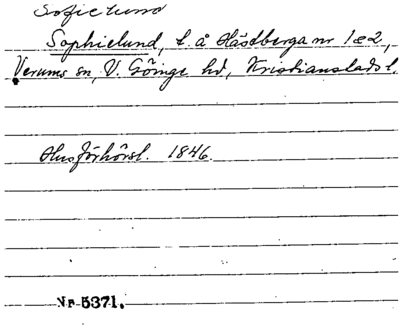 Sofielund
Sophielund, t. å Hästberga nr 1 & 2,
Verums sn, V. Göinge hd, Kristianstads l.
Husförhörsl. 1846.
Nr 5371.